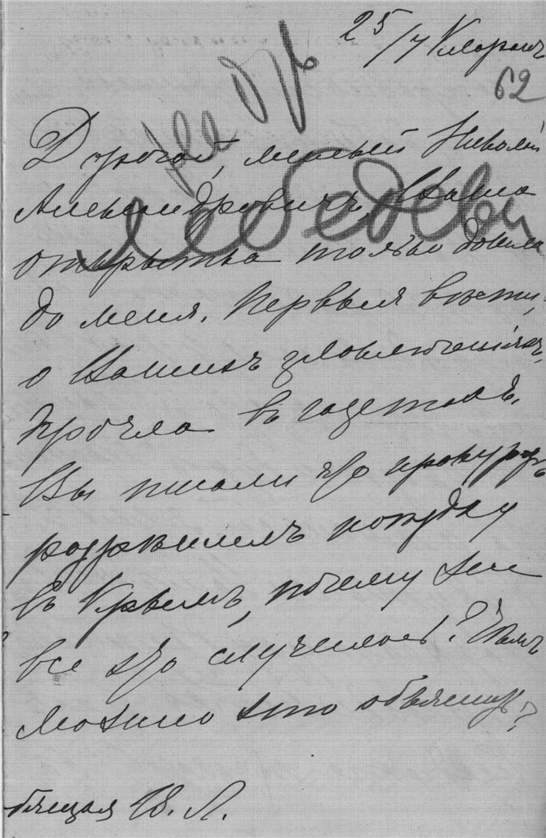 25/
62
Дорогой, милый Николай
Александровичъ, Ваша
открытка только дошла
до меня. Первыя вѣсти,
о Вашихъ злоключенiяхъ,
прочла въ газетахъ.
Вы писали что прокуроръ
разрѣшилъ поѣздку
въ Крымъ, почему же
все это случилось? Чѣмъ
можно это объяснить?
Ю. Л.
Лебедева